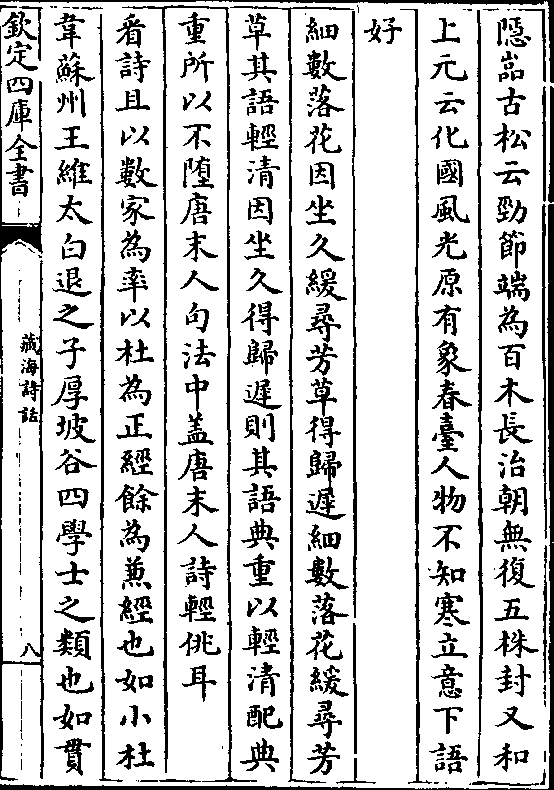 隱嵓古松云勁節端為百木長治朝無復五株封又和
上元云化國風光原有象春臺人物不知寒立意下語
好
細數落花因坐久緩尋芳草得歸遲細數落花緩尋芳
草其語輕清因坐久得歸遲則其語典重以輕清配典
重所以不墮唐末人句法中盖唐末人詩輕佻耳
看詩且以數家為率以杜為正經餘為兼經也如小杜
韋蘇州王維太白退之子厚坡谷四學士之類也如貫
欽定四庫全書
藏海詩話
八